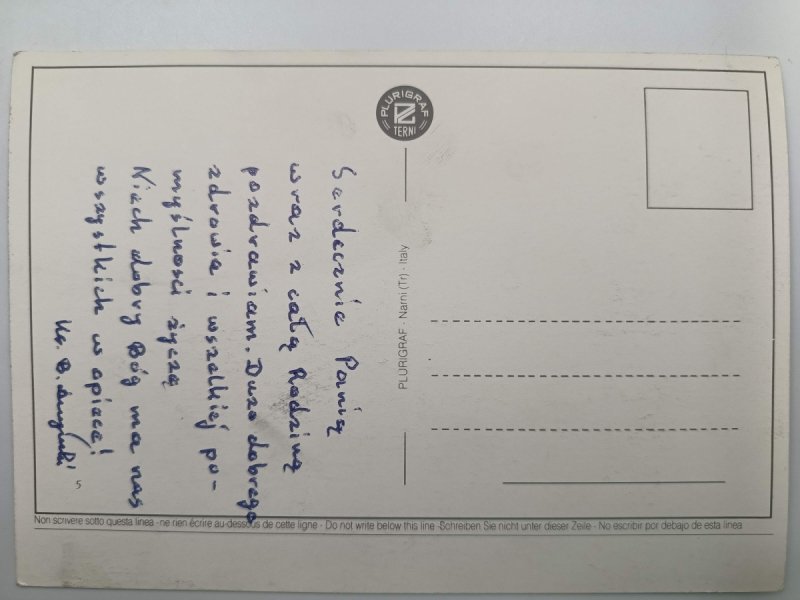 Serdecznie Panią
wraz z całą Rodziną
pozdrawiam. Dużo dobrego
zdrowia i wszelkiej po-
myślności życzę
Niech dobry Bóg ma nas
wszystkich w opiece!
Ks. B.
5
PLURIGRAF
TERNI
PLURIGRAF - Narni (Tr) - Italy
Non scrivere sotto questa linea - ne rien écrire au-dessous de cette ligne - Do not write below this line - Schreiben Sie nicht unter dieser Zeile - No escribir por debajo de esta linea